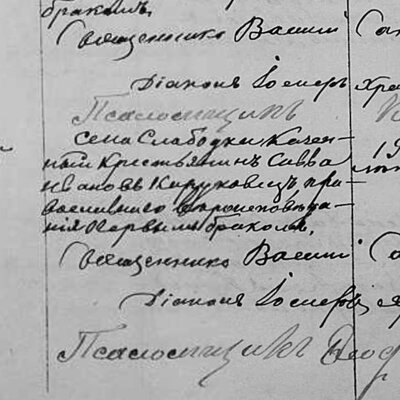 бракомъ,
Священникъ Васили
Дiаконъ Iосифъ Хра
Псаломщикъ
села Слободки казен-
ный крестьянинъ Савва
Ивановъ пра-
вославнаго вѣроисповѣда-
нiя первымъ бракомъ,
Священникъ Васили
Дiаконъ Iосифъ
Псаломщикъ